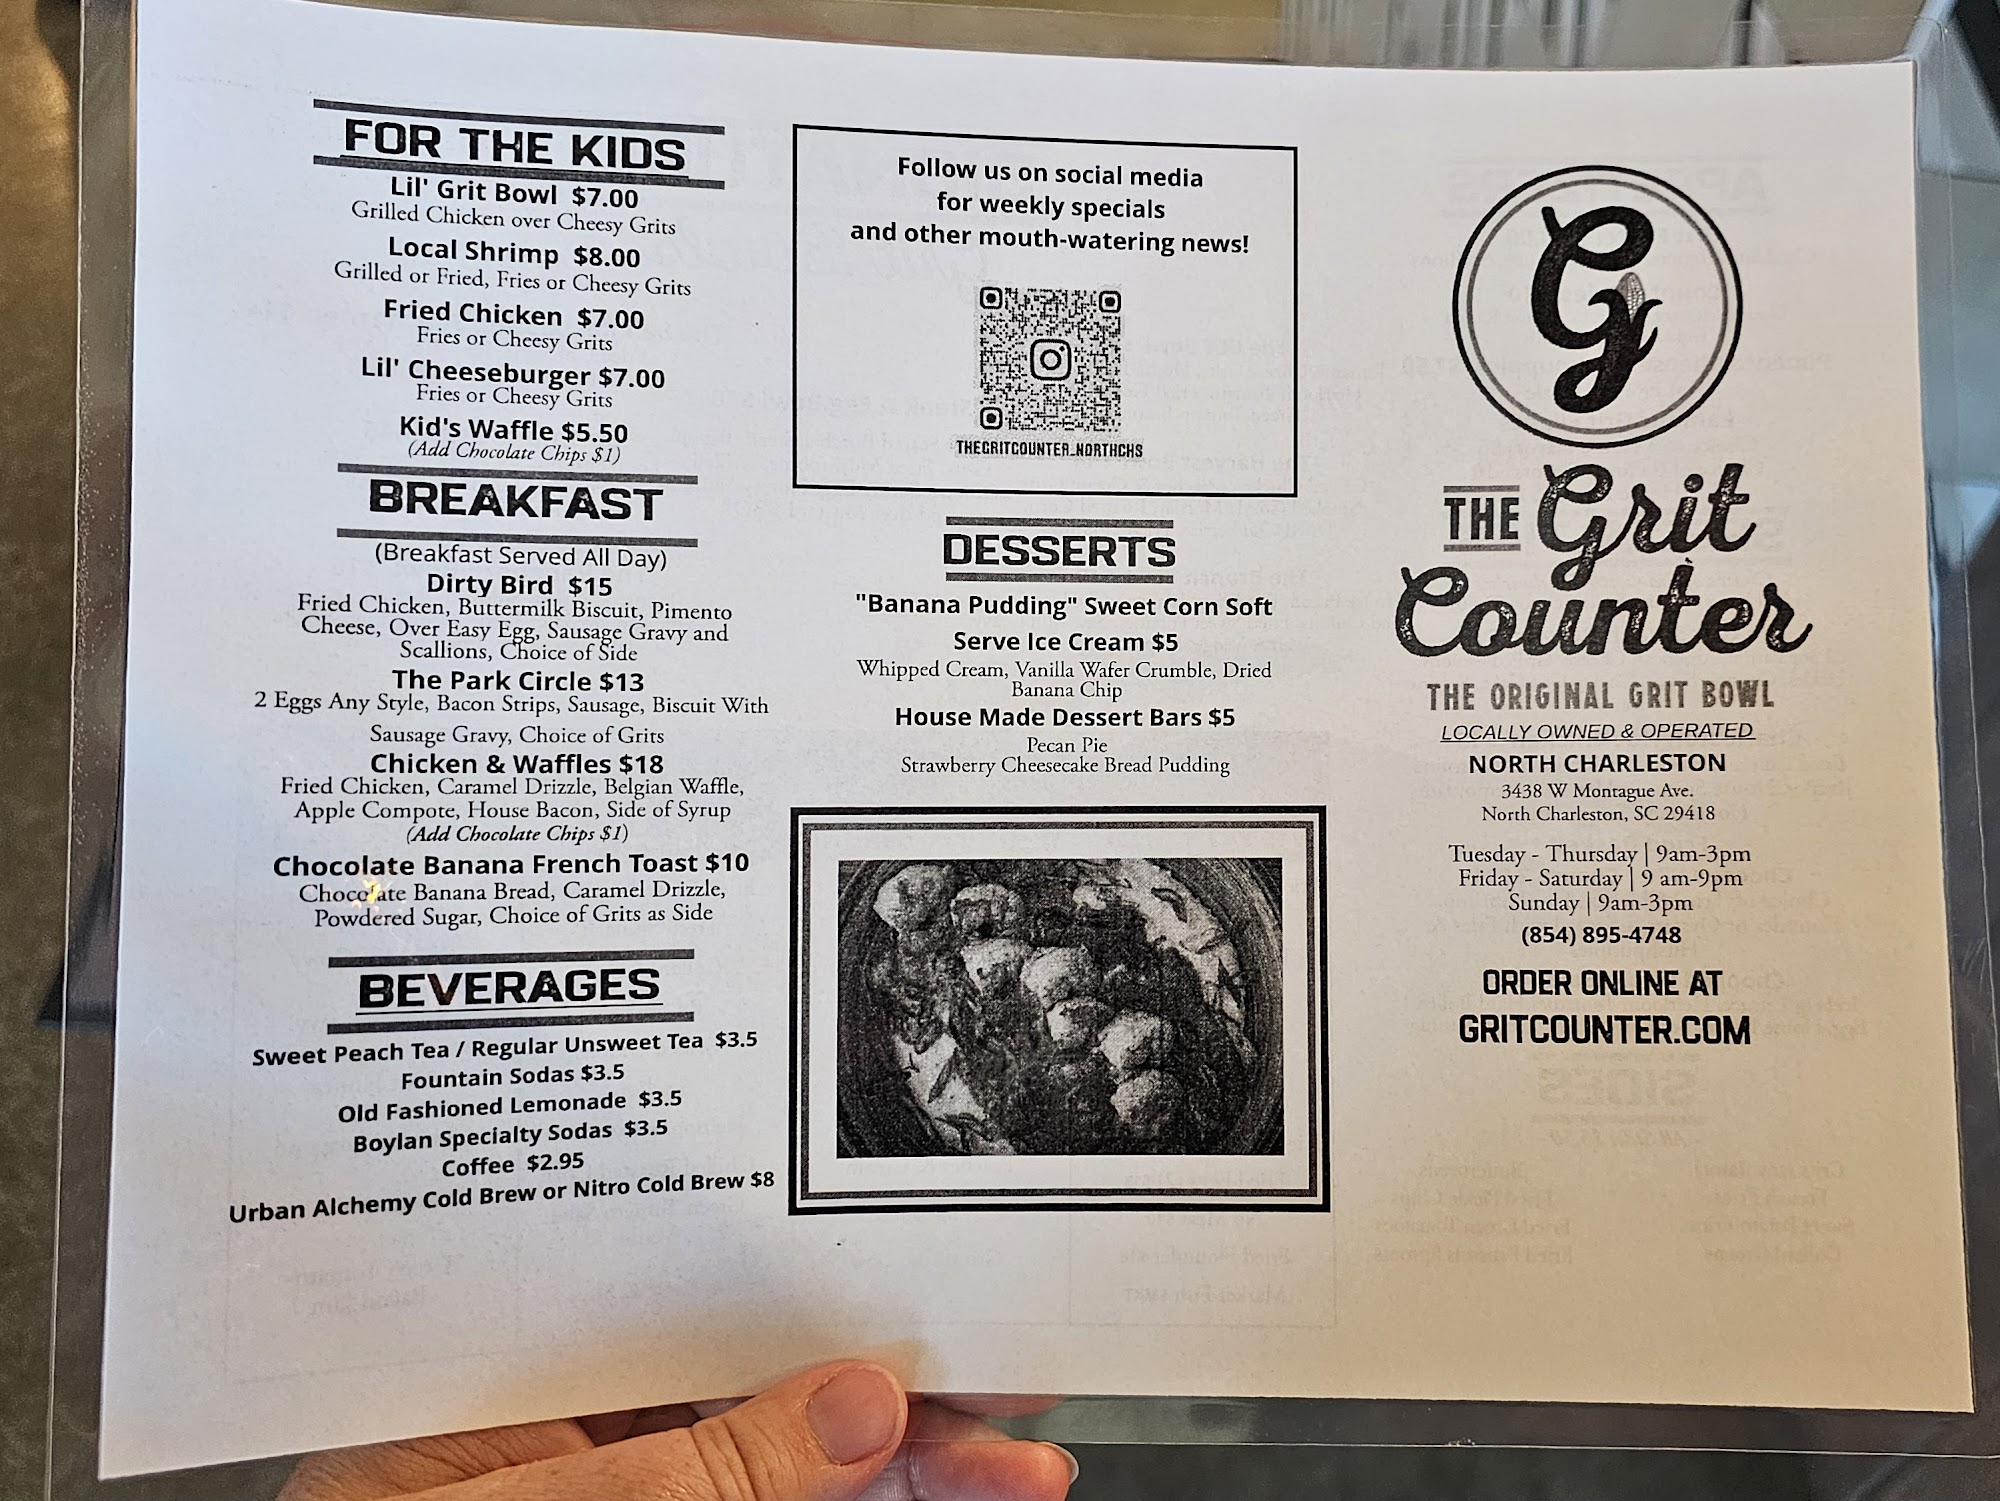 FOR THE KIDS
Lil' Grit Bowl $7.00
Grilled Chicken over Cheesy Grits
Local Shrimp $8.00
Grilled or Fried, Fries or Cheesy Grits
Fried Chicken $7.00
Fries or Cheesy Grits
Lil' Cheeseburger $7.00
Fries or Cheesy Grits
Kid's Waffle $5.50
(Add Chocolate Chips $1)
BREAKFAST
(Breakfast Served All Day)
Dirty Bird $15
Fried Chicken, Buttermilk Biscuit, Pimento
Cheese, Over Easy Egg, Sausage Gravy and
Scallions, Choice of Side
The Park Circle $13
2 Eggs Any Style, Bacon Strips, Sausage, Biscuit With
Sausage Gravy, Choice of Grits
Chicken & Waffles $18
Fried Chicken, Caramel Drizzle, Belgian Waffle,
Apple Compote, House Bacon, Side of Syrup
(Add Chocolate Chips $1)
Chocolate Banana French Toast $10
Chocolate Banana Bread, Caramel Drizzle,
Powdered Sugar, Choice of Grits as Side
BEVERAGES
Sweet Peach Tea / Regular Unsweet Tea $3.5
Fountain Sodas $3.5
Old Fashioned Lemonade $3.5
Boylan Specialty Sodas $3.5
Coffee $2.95
Urban Alchemy Cold Brew or Nitro Cold Brew $8
Follow us on social media
for weekly specials
and other mouth-watering news!
THEGRITCOUNTER_NORTHCHS
DESSERTS
"Banana Pudding" Sweet Corn Soft
Serve Ice Cream $5
Whipped Cream, Vanilla Wafer Crumble, Dried
Banana Chip
House Made Dessert Bars $5
Pecan Pie
Strawberry Cheesecake Bread Pudding
G
THE Grit
Counter
THE ORIGINAL GRIT BOWL
LOCALLY OWNED & OPERATED
NORTH CHARLESTON
3438 W Montague Ave.
North Charleston, SC 29418
Tuesday - Thursday | 9am-3pm
Friday - Saturday | 9 am-9pm
Sunday | 9am-3pm
(854) 895-4748
ORDER ONLINE AT
GRITCOUNTER.COM